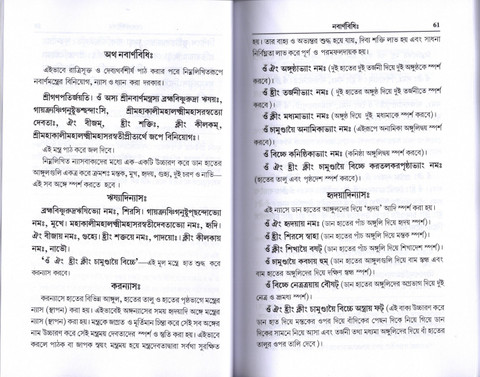 অথ নবার্ণবিধিঃ
এইভাবে রাত্রিসূক্ত ও দেব্যথর্বশীর্ষ পাঠ করার পরে নিম্নলিখিতরূপে
নবার্ণমন্ত্রের বিনিয়োগ, ন্যাস ও ধ্যান করা দরকার।
শ্রীগণপতির্জয়তি। ওঁ অস্য শ্রীনবার্ণমন্ত্রস্য ব্রহ্মবিষ্ণুরুদ্রা ঋষয়ঃ,
গায়ত্র্যুষ্ণিগনুষ্টুভশ্ছন্দাংসি, শ্রীমহাকালীমহালক্ষ্মীমহাসরস্বত্যো
দেবতাঃ, ঐং বীজম্, হ্রীং শক্তিঃ, ক্লীং কীলকম্,
শ্রীমহাকালীমহালক্ষ্মীমহাসরস্বতীপ্রীত্যর্থে জপে বিনিয়োগঃ।
এই মন্ত্র পাঠ করে জল দিবে।
নিম্নলিখিত ন্যাসবাক্যদের মধ্যে এক-একটি উচ্চারণ করে ডান হাতের
আঙ্গুলগুলি একত্র করে ক্রমশঃ মস্তক, মুখ, হৃদয়, গুহ্য, দুই চরণ ও নাভি—
এই সব অঙ্গে স্পর্শ করতে হবে।
ঋষ্যাদিন্যাসঃ
ব্রহ্মবিষ্ণুরুদ্রঋষিভ্যো নমঃ, শিরসি। গায়ত্র্যুষ্ণিগনুষ্টুপ্ছন্দোভ্যো
নমঃ, মুখে। মহাকালীমহালক্ষ্মীমহাসরস্বতীদেবতাভ্যো নমঃ, হৃদি।
ঐং বীজায় নমঃ, গুহ্যে। হ্রীং শক্তয়ে নমঃ, পাদয়োঃ। ক্লীং কীলকায়
নমঃ, নাভৌ।
'ওঁ ঐং হ্রীং ক্লীং চামুণ্ডায়ৈ বিচ্চে'—এই মূল মন্ত্রে হাত শুদ্ধ করে
করন্যাস করবে।
করন্যাসঃ
করন্যাসে হাতের বিভিন্ন আঙ্গুল, হাতের তালু ও হাতের পৃষ্ঠভাগে মন্ত্রের
ন্যাস (স্থাপন) করা হয়। এইভাবেই অঙ্গন্যাসের সময় হৃদয়াদি অঙ্গে মন্ত্রের
ন্যাস (স্থাপন) করা হয়। মন্ত্রকে জাগ্রত ও মূর্তিমান চিন্তা করে সেই সব অঙ্গের
নাম উচ্চারণ করে সেই মন্ত্রময় দেবতাদের স্পর্শ ও স্তুতি করা হয়। এইপ্রকার
করলে পাঠক বা জাপক স্বয়ং মন্ত্রময় হয়ে মন্ত্রদেবতাদ্বারা সর্বথা সুরক্ষিত
নবার্ণবিধিঃ 61
হয়। তার বাহ্য ও অভ্যন্তর শুদ্ধ হয়ে যায়, দিব্য শক্তি লাভ হয় এবং সাধনা
নির্বিঘ্নতা লাভ করে পূর্ণ ও পরমফলদায়ক হয়।
ওঁ ঐং অঙ্গুষ্ঠাভ্যাং নমঃ (দুই হাতের তর্জনী দিয়ে দুই অঙ্গুষ্ঠকে স্পর্শ
করবে)।
ওঁ হ্রীং তর্জনীভ্যাং নমঃ (দুই হাতের অঙ্গুষ্ঠ দিয়ে দুই তর্জনীকে স্পর্শ
করবে)।
ওঁ ক্লীং মধ্যমাভ্যাং নমঃ (অঙ্গুষ্ঠ দিয়ে দুই মধ্যমাকে স্পর্শ করবে)।
ওঁ চামুণ্ডায়ৈ অনামিকাভ্যাং নমঃ (এইরূপে অনামিকা অঙ্গুলিদ্বয় স্পর্শ
করবে)।
ওঁ বিচ্চে কনিষ্ঠিকাভ্যাং নমঃ (কনিষ্ঠা অঙ্গুলিদ্বয় স্পর্শ করবে)।
ওঁ ঐং হ্রীং ক্লীং চামুণ্ডায়ৈ বিচ্চে করতলকরপৃষ্ঠাভ্যাং নমঃ
(হাতের তালু এবং পৃষ্ঠদেশ স্পর্শ করবে)।
হৃদয়াদিন্যাসঃ
এই ন্যাসে ডান হাতের আঙ্গুলদের দিয়ে 'হৃদয়' আদি স্পর্শ করা হয়।
ওঁ ঐং হৃদয়ায় নমঃ (ডান হাতের পাঁচ অঙ্গুলি দিয়ে হৃদয় স্পর্শ)।
ওঁ হ্রীং শিরসে স্বাহা (ডান হাতের পাঁচ অঙ্গুলি দিয়ে মস্তক স্পর্শ)।
ওঁ ক্লীং শিখায়ৈ বষট্ (ডান হাতের পাঁচ অঙ্গুলি দিয়ে শিখা স্পর্শ)।
ওঁ চামুণ্ডায়ৈ কবচায় হুম্ (ডান হাতের অঙ্গুলিদের দিয়ে বাম স্কন্ধ এবং
বাম হাতের অঙ্গুলিদের দিয়ে দক্ষিণ স্কন্ধ স্পর্শ)।
ওঁ বিচ্চে নেত্রত্রয়ায় বৌষট্ (ডান হাতের অঙ্গুলিদের অগ্রভাগ দিয়ে দুই
নেত্র ও ভ্রূমধ্য স্পর্শ)।
ওঁ ঐং হ্রীং ক্লীং চামুণ্ডায়ৈ বিচ্চে অস্ত্রায় ফট্ (এই বাক্য উচ্চারণ করে
ডান হাত দিয়ে মস্তকের ওপর দিয়ে বাঁদিকের পেছন দিকে নিয়ে গিয়ে ডান
দিকের সামনে নিয়ে আসা এবং তর্জনী তথা মধ্যমা অঙ্গুলিদের দিয়ে বাঁ হাতের
তালুর ওপর তালি দেবে)।